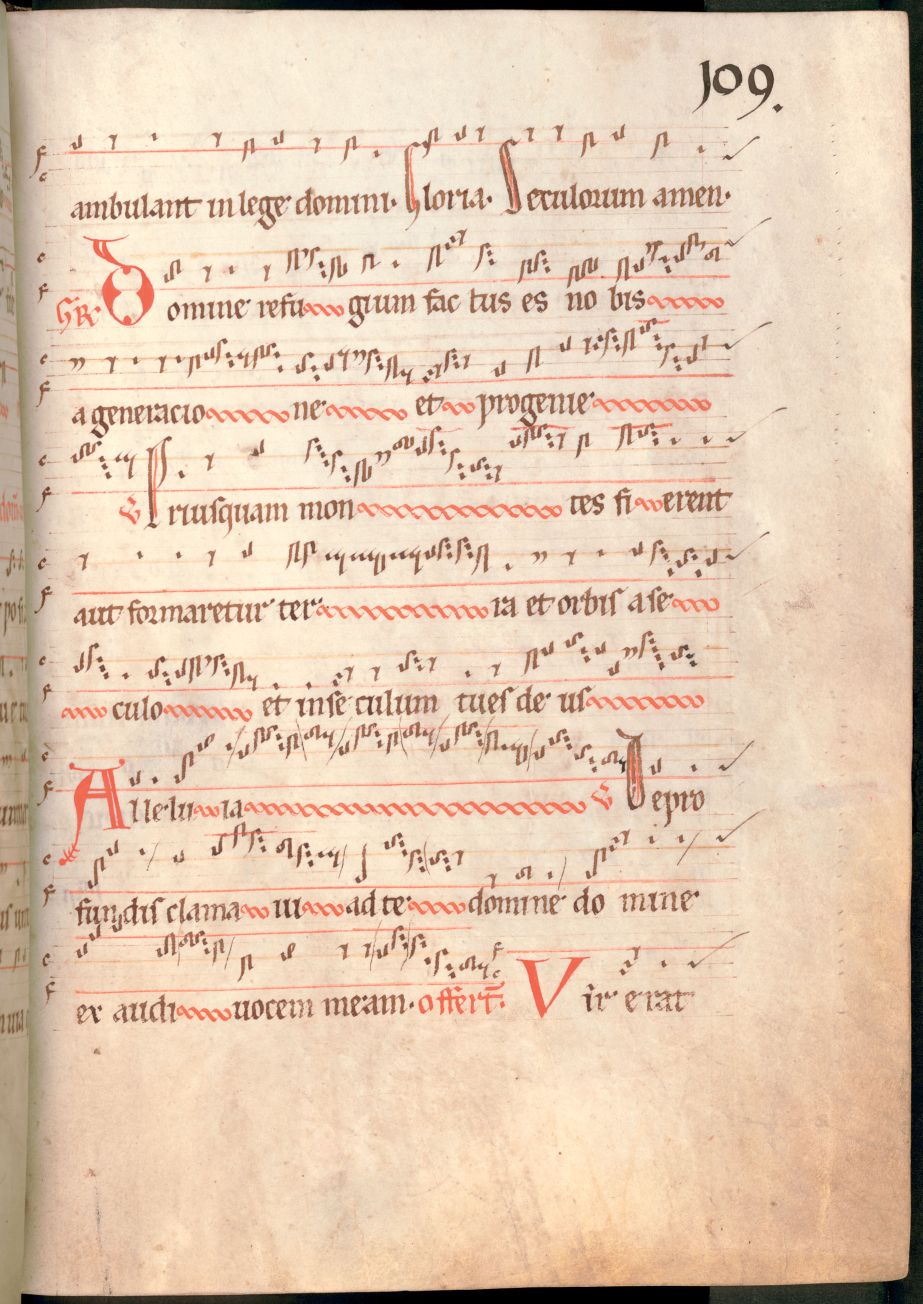 109.
ambulant in lege domini. Gloria. Seculorum amen.
GR Domine refugium factus es nobis
a generacione et progenie
V Priusquam montes fierent
aut formaretur terra et orbis a se
culo et in seculum tu es deus
Alleluia V De pro
fundis clamaui ad te domine domine
exaudi uocem meam. offert. Vir erat